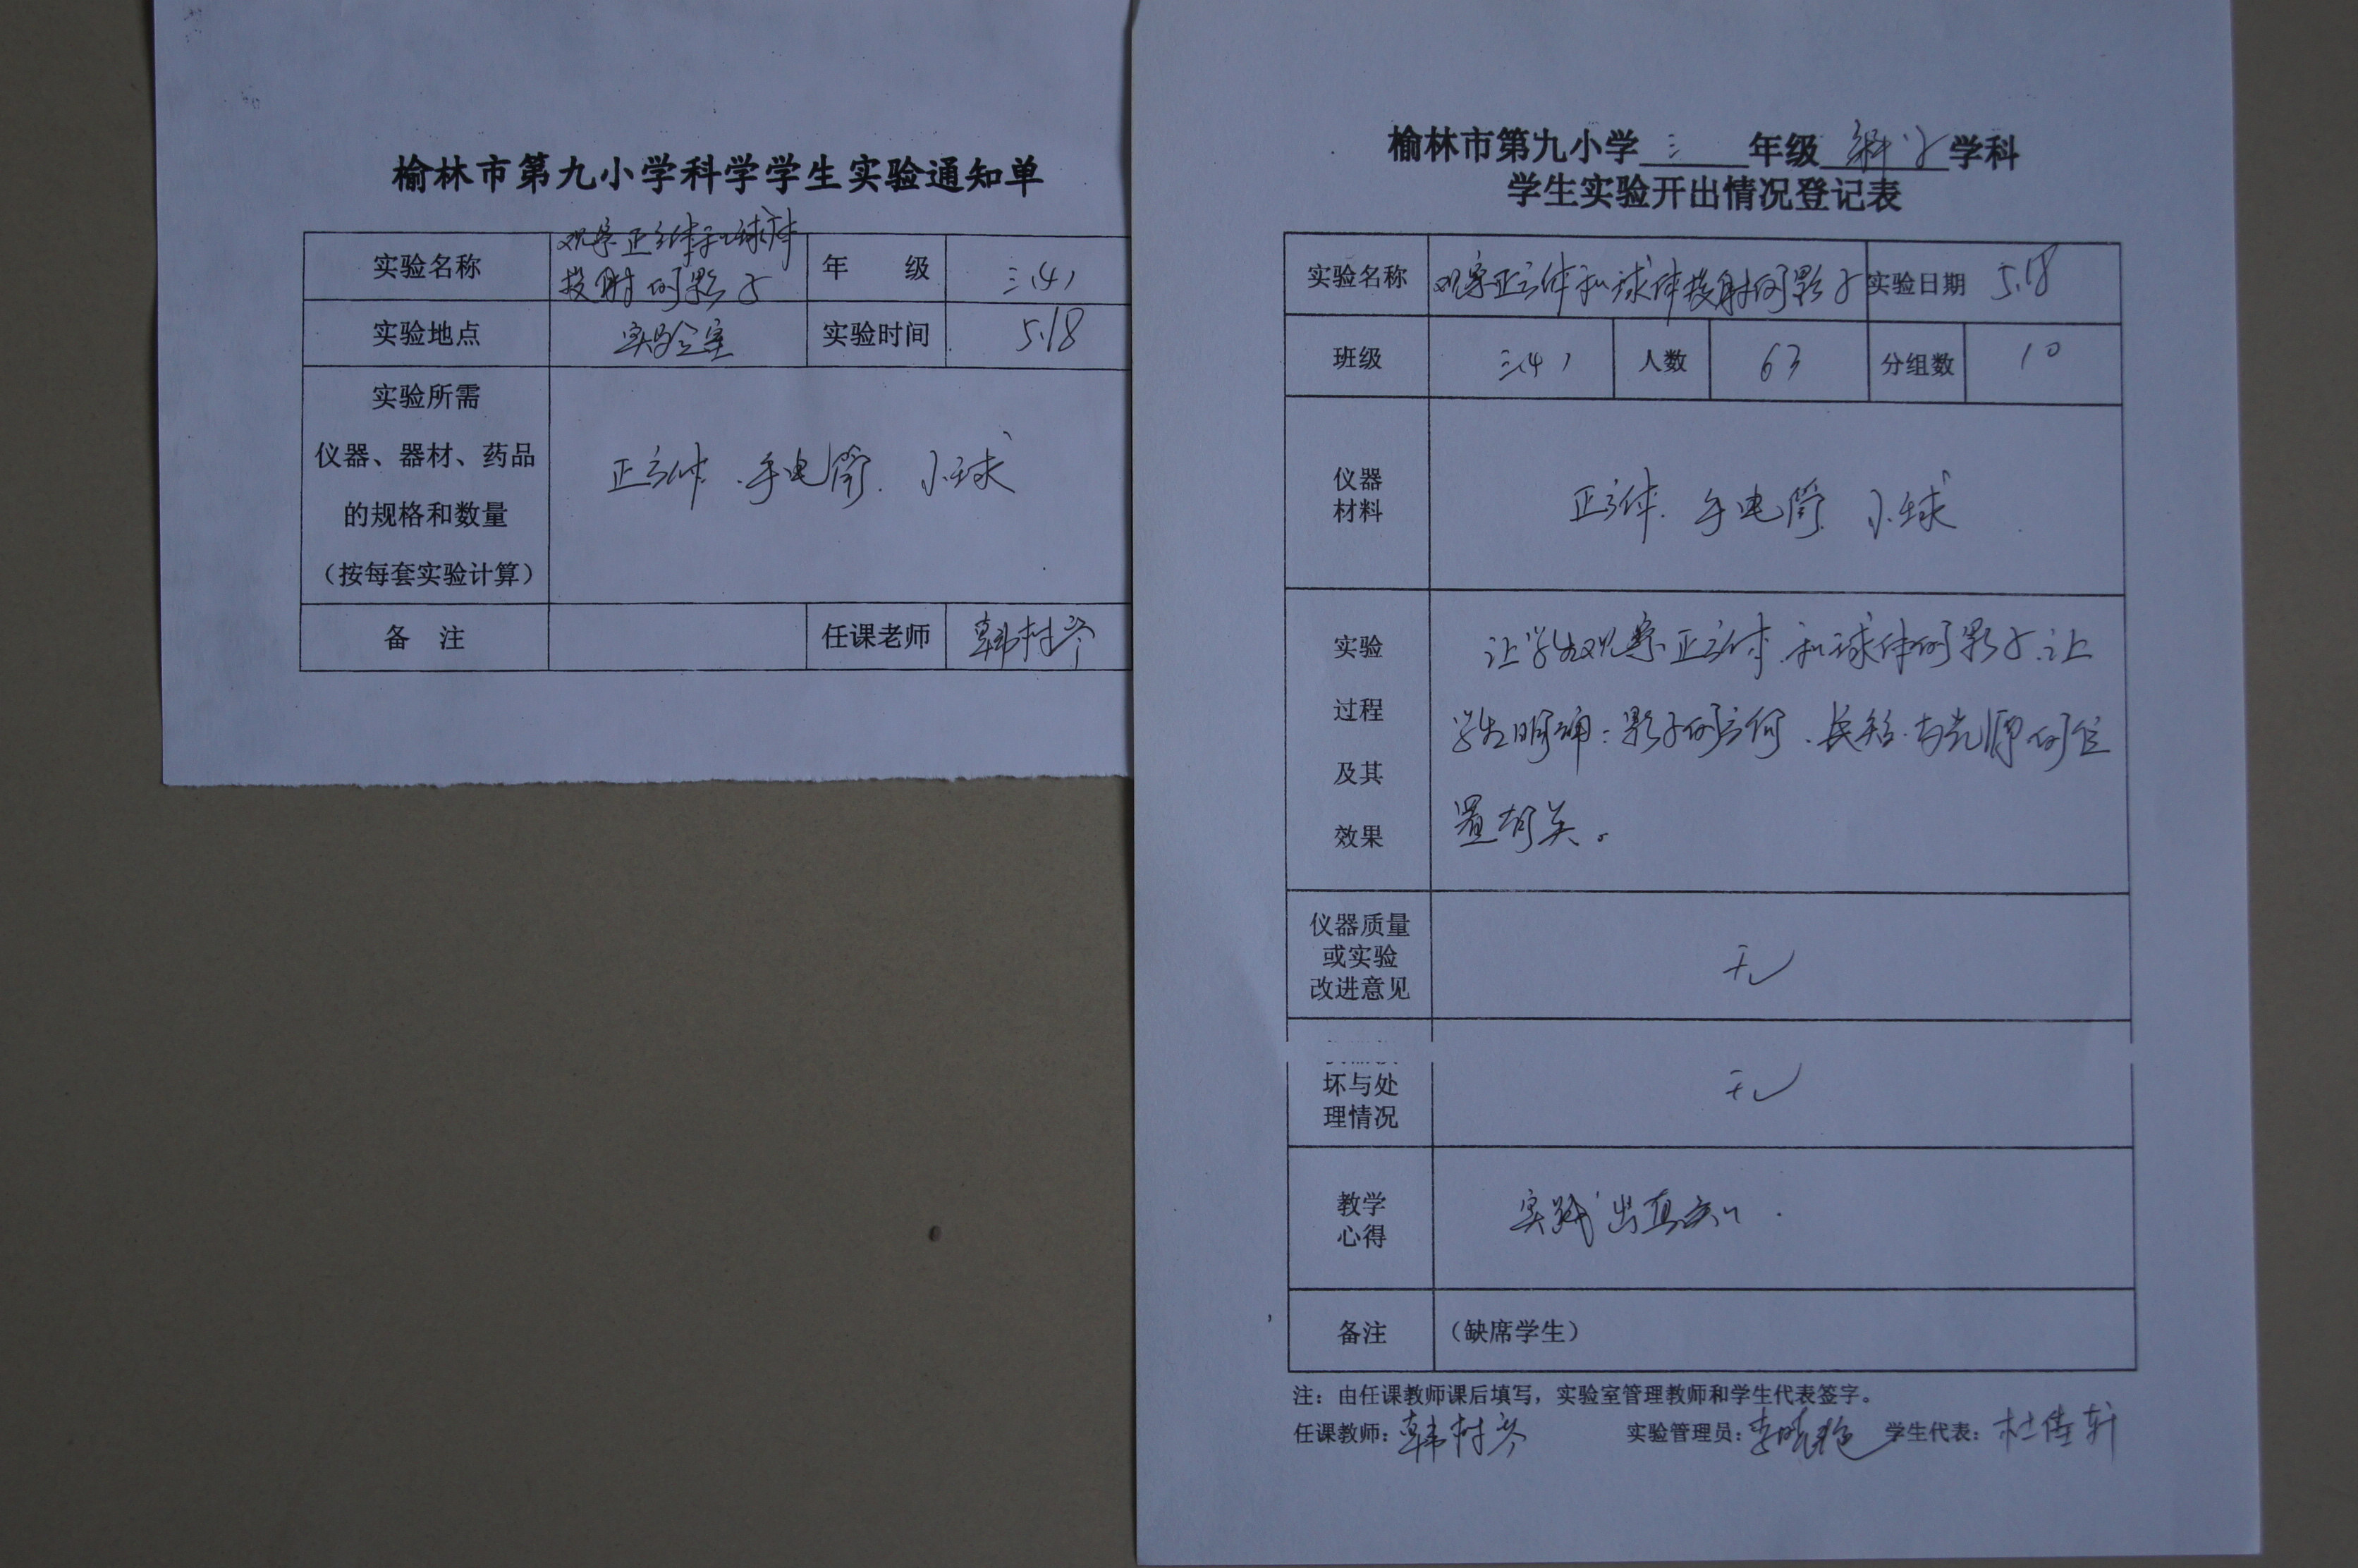 榆林市第九小学科学学生实验通知单
实验名称 观察正方体和球体
投射的影子 年 级 三(4)
实验地点 实验室 实验时间 5.18
实验所需
仪器、器材、药品
的规格和数量
（按每套实验计算）
正方体. 手电筒. 小球
备 注 任课老师 韩树
榆林市第九小学 三 年级 科学 学科
学生实验开出情况登记表
实验名称 观察正方体和球体投射的影子 实验日期 5.18
班级 三(4) 人数 63 分组数 10
仪器
材料
正方体. 手电筒 小球
实验
过程
及其
效果
让学生观察正方体和球体的影子.让
学生明确：影子的方向、长短.与光源的位
置有关。
仪器质量
或实验
改进意见
无
坏与处
理情况
无
教学
心得
实践出真知.
备注 （缺席学生）
注：由任课教师课后填写，实验室管理教师和学生代表签字。
任课教师：韩树 实验管理员：李晓艳 学生代表：杜佳轩